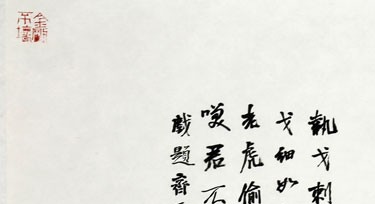 執戈刺
戈細如
老虎偷
咲君不
戲題齊